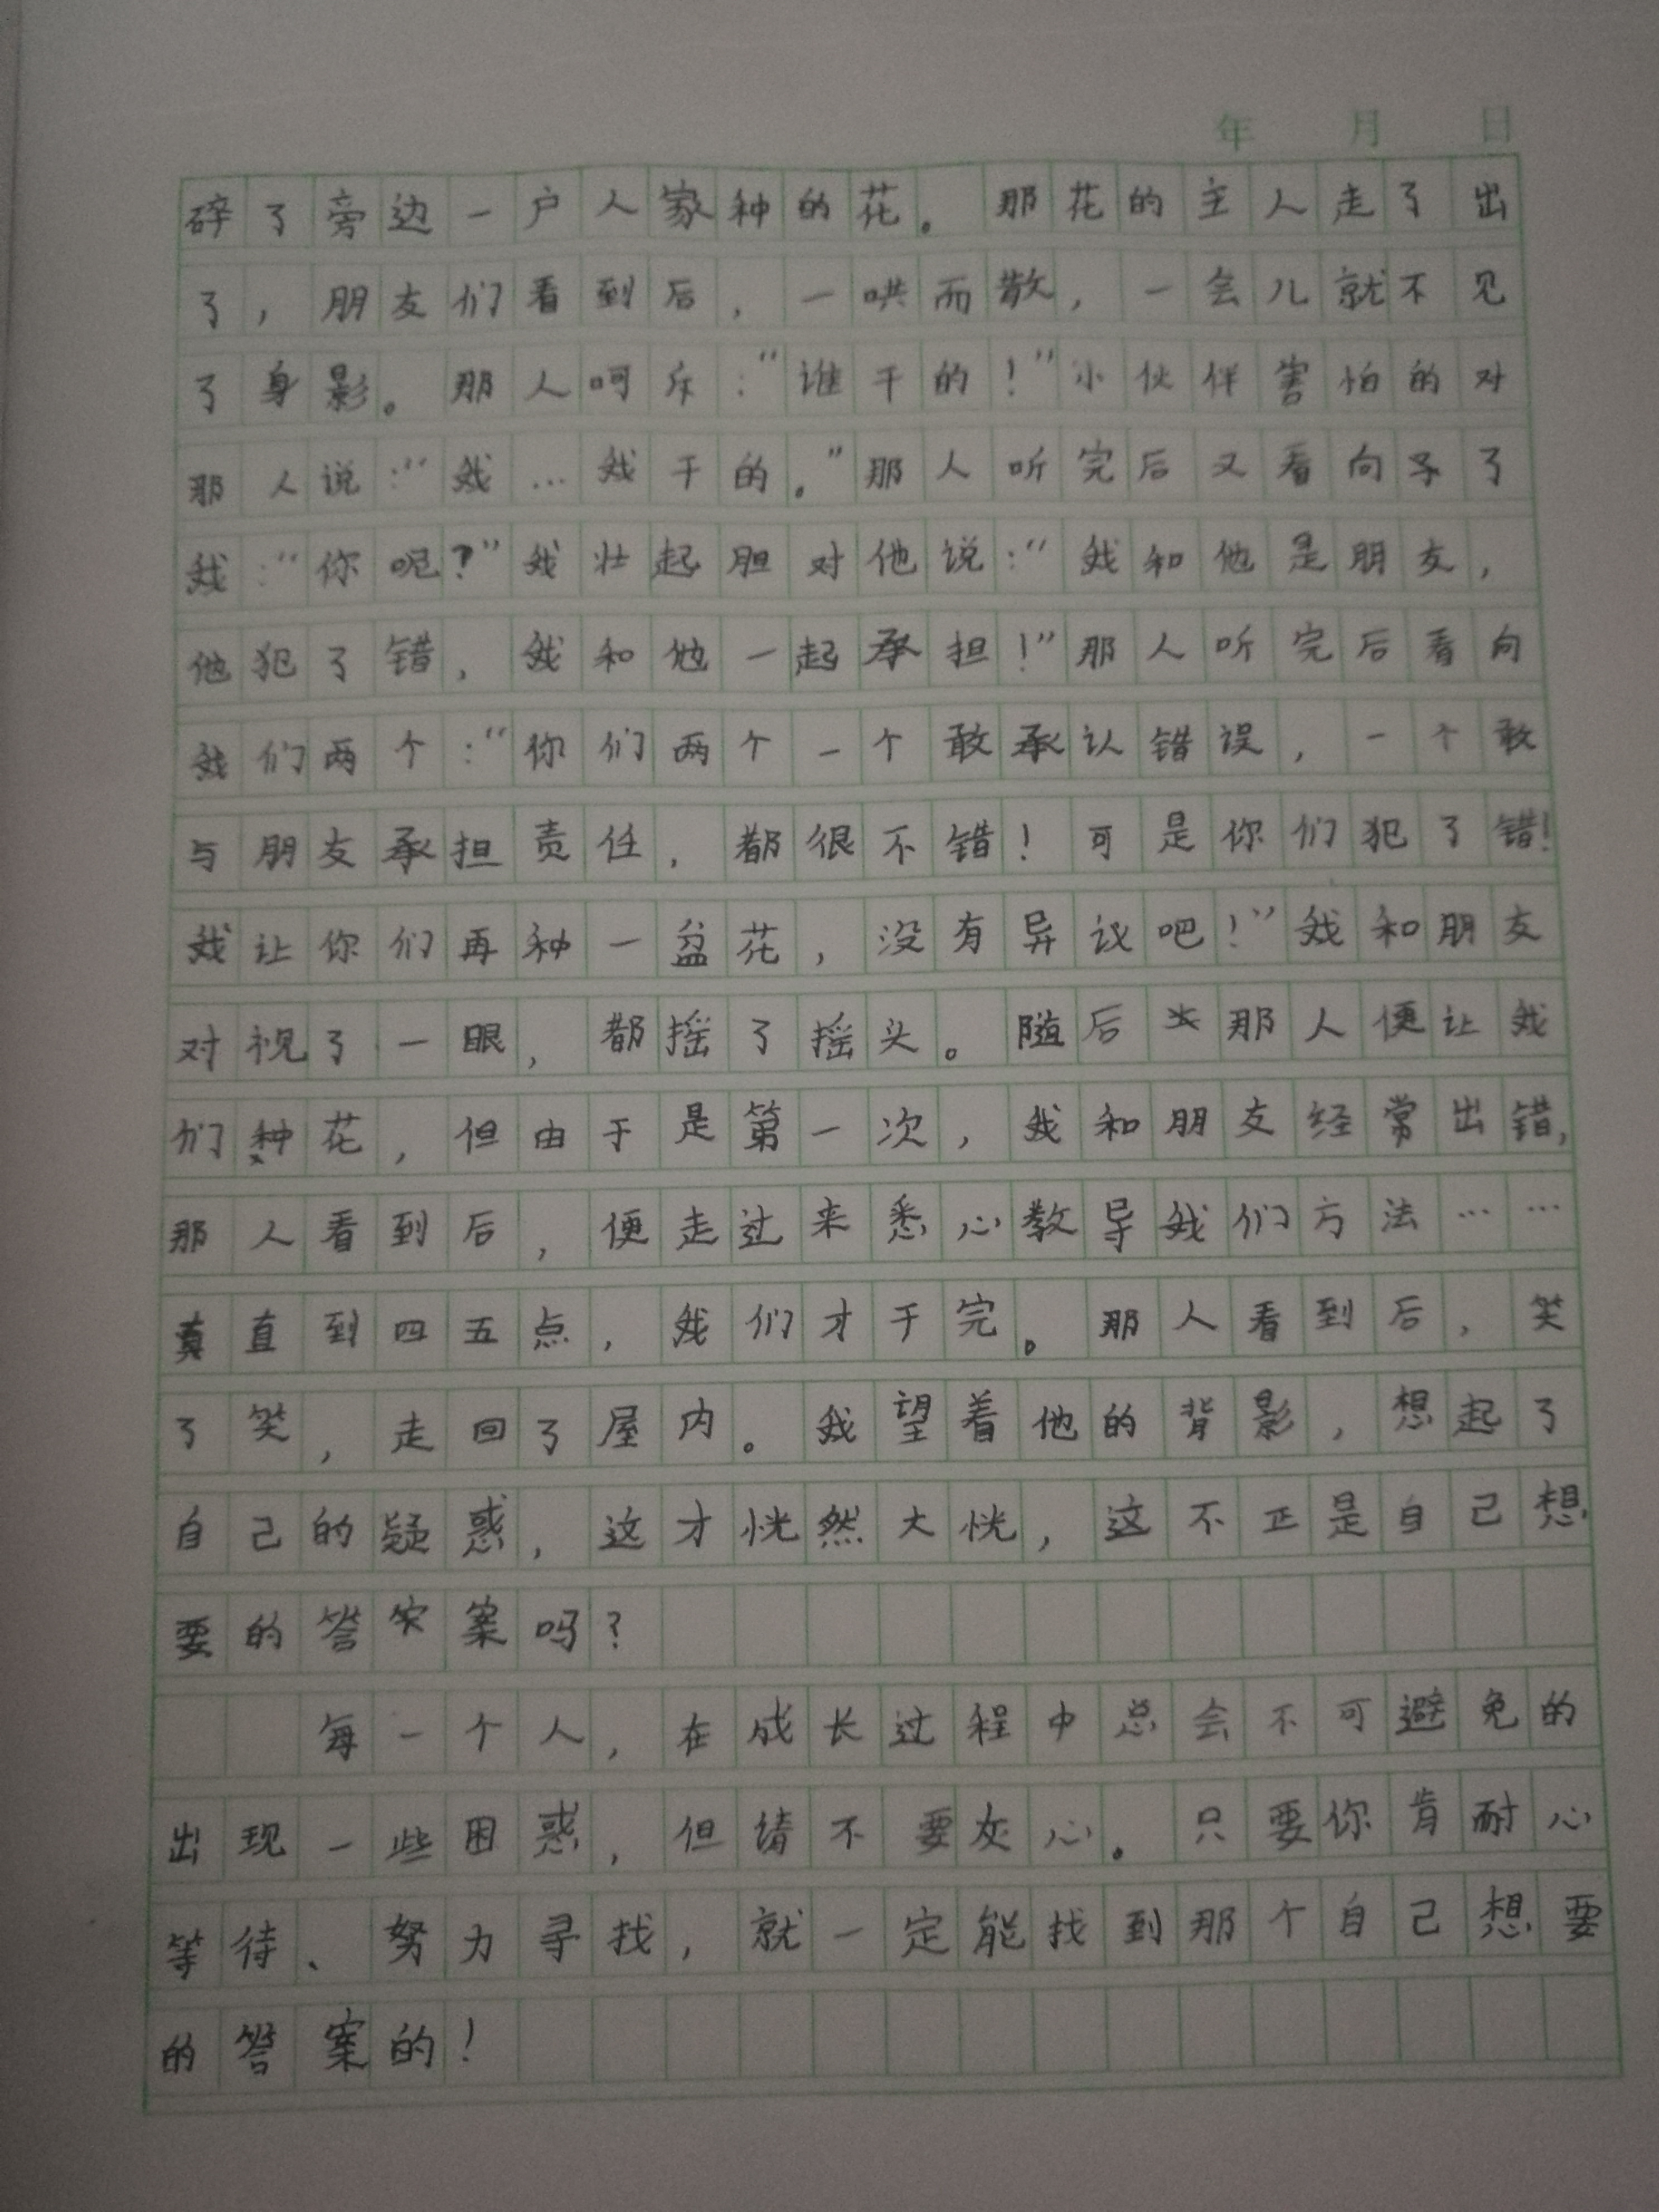 年 月 日
碎了旁边一户人家种的花。那花的主人走了出
了，朋友们看到后，一哄而散，一会儿就不见
了身影。那人呵斥：“谁干的！”小伙伴害怕的对
那人说：“我…我干的。”那人听完后又看向了
我：“你呢？”我壮起胆对他说：“我和他是朋友，
他犯了错，我和他一起承担！”那人听完后看向
我们两个：“你们两个一个敢承认错误，一个敢
与朋友承担责任，都很不错！可是你们犯了错！
我让你们再种一盆花，没有异议吧！”我和朋友
对视了一眼，都摇了摇头。随后那人便让我
们种花，但由于是第一次，我和朋友经常出错，
那人看到后，便走过来悉心教导我们方法……
直到四五点，我们才干完。那人看到后，笑
了笑，走回了屋内。我望着他的背影，想起了
自己的疑惑，这才恍然大恍，这不正是自己想
要的答案吗？
每一个人，在成长过程中总会不可避免的
出现一些困惑，但请不要灰心。只要你肯耐心
等待、努力寻找，就一定能找到那个自己想要
的答案的！